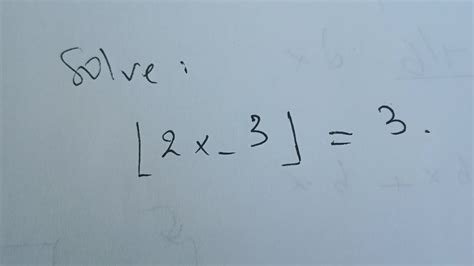 Solve:
⌊2x-3⌋ = 3.